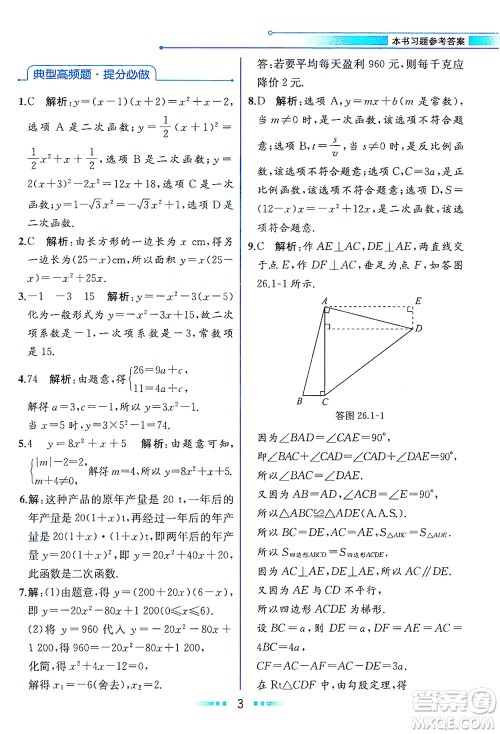 本书习题参考答案
典型高频题·提分必做
1.C 解析:y=(x-1)(x+2)=x²+x-2,
选项 A 是二次函数;y=\frac{1}{2}(x+1)²=
\frac{1}{2}x²+x+\frac{1}{2},选项 B 是二次函数;y=
2(x+3)²-2x²=12x+18,选项 C 不是二
次函数;y=1-√3x²=-√3x²+1,选项 D
是二次函数.
2.C 解析:由长方形的一边长为 x cm,得另
一边长为(25-x)cm,所以面积 y=
x(25-x)=-x²+25x.
3.-1 -3 15 解析:y=-x²-3(x-5)
化为一般形式为 y=-x²-3x+15,故二次
项系数是-1,一次项系数是-3,常数项
是 15.
4.74 解析:由题意,得{26=9a+c, 11=4a+c,
解得{a=3, c=-1. 所以 y=3x²-1.
当 x=5 时,y=3×5²-1=74.
5.4 y=8x²+x+5 解析:由题意可知,
{|m|-2=2, m+4≠0, 解得 m=4.
6.解:这种产品的原年产量是 20 t,一年后的
年产量是 20(1+x)t,再经过一年后的年
产量是 20(1+x)·(1+x)t,即两年后的年
产量为 y=20(1+x)²=20x²+40x+20,
此函数是二次函数.
7.解:(1)由题意,得 y=(200+20x)(6-x)=
-20x²-80x+1 200(0≤x≤6).
(2)将 y=960 代入 y=-20x²-80x+
1 200,得-20x²-80x+1 200=960,
化简,得 x²+4x-12=0,
解得 x₁=-6(舍去),x₂=2.
答:若要平均每天盈利 960 元,则每千克应
降价 2 元.
8.D 解析:选项 A,y=mx+b(m 是常数),
当 m≠0 时,是一次函数,故该选项不符合题
意;选项 B,t=\frac{s}{v},当 s≠0 时,是反比例函
数,故该选项不符合题意;选项 C,C=3a,是正
比例函数,故该选项不符合题意;选项 D,S=
(12-x)x=-x²+12x,是二次函数,故该选
项符合题意.
9.C 解析:作 AE⊥AC,DE⊥AE,两线交
于点 E,作 DF⊥AC,垂足为 F,如答图
26.1-1 所示.
A
E
F
D
B
C
答图 26.1-1
因为∠BAD=∠CAE=90°,
所以∠BAC=∠EAD.
又因为 AB=AD,∠BCA=∠E=90°,
所以△ABC≌△ADE(A.A.S.).
所以 BC=DE,AC=AE.
所以 S四边形ABCD=S四边形ACDE.
因为∠ACD≠90°,
所以 AE∥CF,AE 与 CD 不平行,
所以四边形 ACDE 为梯形.
设 BC=a,则 DE=a,
DF=AE=AC=4BC=4a,
CF=AC-AF=AC-DE=3a.
在 Rt△CDF 中,由勾股定理,得
3